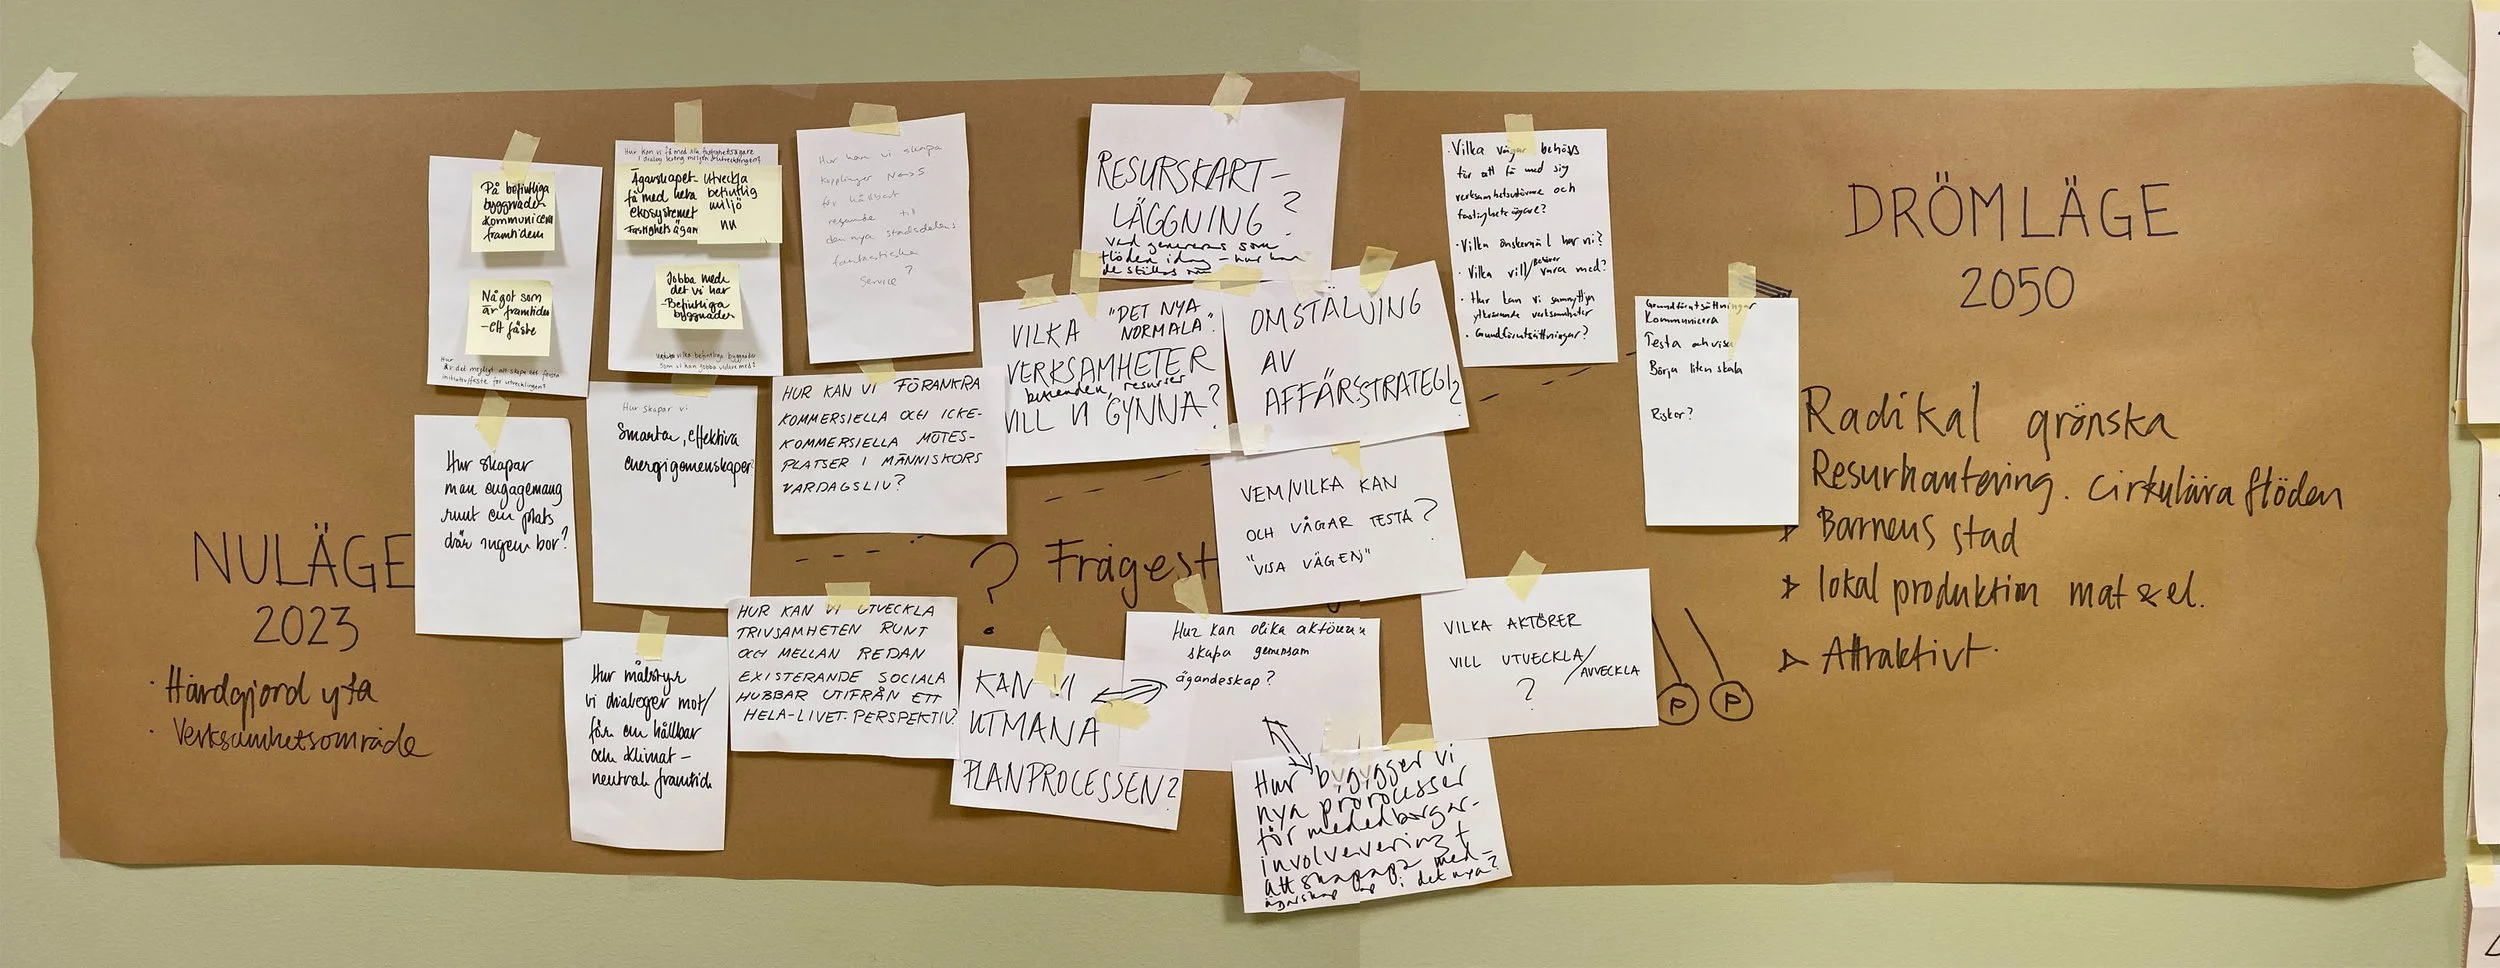 NULÄGE
2023
· Hårdgjord yta
· Verksamhetsområde
På befintliga
byggnader
kommunicera
framtiden
Något som
är framtiden
- ett fäste
Hur
är det möjligt att skapa ett första
initiativ/fäste för utvecklingen?
Hur kan vi få med alla fastighetsägare
i dialog kring miljön & utvecklingen?
Ägarskapet -
få med hela
ekosystemet
Fastighetsägan
utveckla
befintlig
miljö
nu
Jobba med
det vi har
- Befintliga
byggnader
vilka befintliga byggnader
som vi kan jobba vidare med?
Hur kan vi skapa
kopplingar N<->S
för hållbart
resande till
den nya stadsdelens
fantastiska
service?
Hur skapar
man engagemang
runt en plats
där ingen bor?
Hur skapar vi
Smarta, effektiva
energigemenskaper?
HUR KAN VI FÖRANKRA
KOMMERSIELLA OCH ICKE-
KOMMERSIELLA MÖTES-
PLATSER I MÄNNISKORS
VARDAGSLIV?
Hur målstyr
vi dialoger mot/
för en hållbar
och klimat-
neutral framtid
HUR KAN VI UTVECKLA
TRIVSAMHETEN RUNT
OCH MELLAN REDAN
EXISTERANDE SOCIALA
HUBBAR UTIFRÅN ETT
HELA-LIVET-PERSPEKTIV?
RESURSKART-
LÄGGNING?
Vad genereras som
flöden idag - hur kan
de ställas
VILKA "DET NYA
NORMALA".
VERKSAMHETER
beteenden, resurser
VILL VI GYNNA?
OMSTÄLVING
AV
AFFÄRSTRATEGI?
VEM/VILKA KAN
OCH VÅGAR TESTA?
"VISA VÄGEN"
? Frågest
KAN VI
UTMANA
PLANPROCESSEN?
Hur kan olika aktörer
skapa gemensam
ägandeskap?
VILKA AKTÖRER
VILL UTVECKLA/
AVVECKLA
?
Hur byygger vi
nya prorocesser
för mededborgar-
involvevering +
att skapapa med-
ägarskap i det nya?
· Vilka vägar behövs
för att få med sig
verksamhetsutövare och
fastighetsägare?
· Vilka önskemål har vi?
· Vilka vill/behöver vara med?
· Hur kan vi samnyttja
ytkrävande verksamheter
· Grundförutsättningar?
Grundförutsättningar
Kommunicera
Testa och visa
Börja liten skala
Risker?
P P
DRÖMLÄGE
2050
Radikal grönska
Resurhantering. Cirkulära flöden
Barnens stad
lokal produktion mat & el.
Attraktivt.